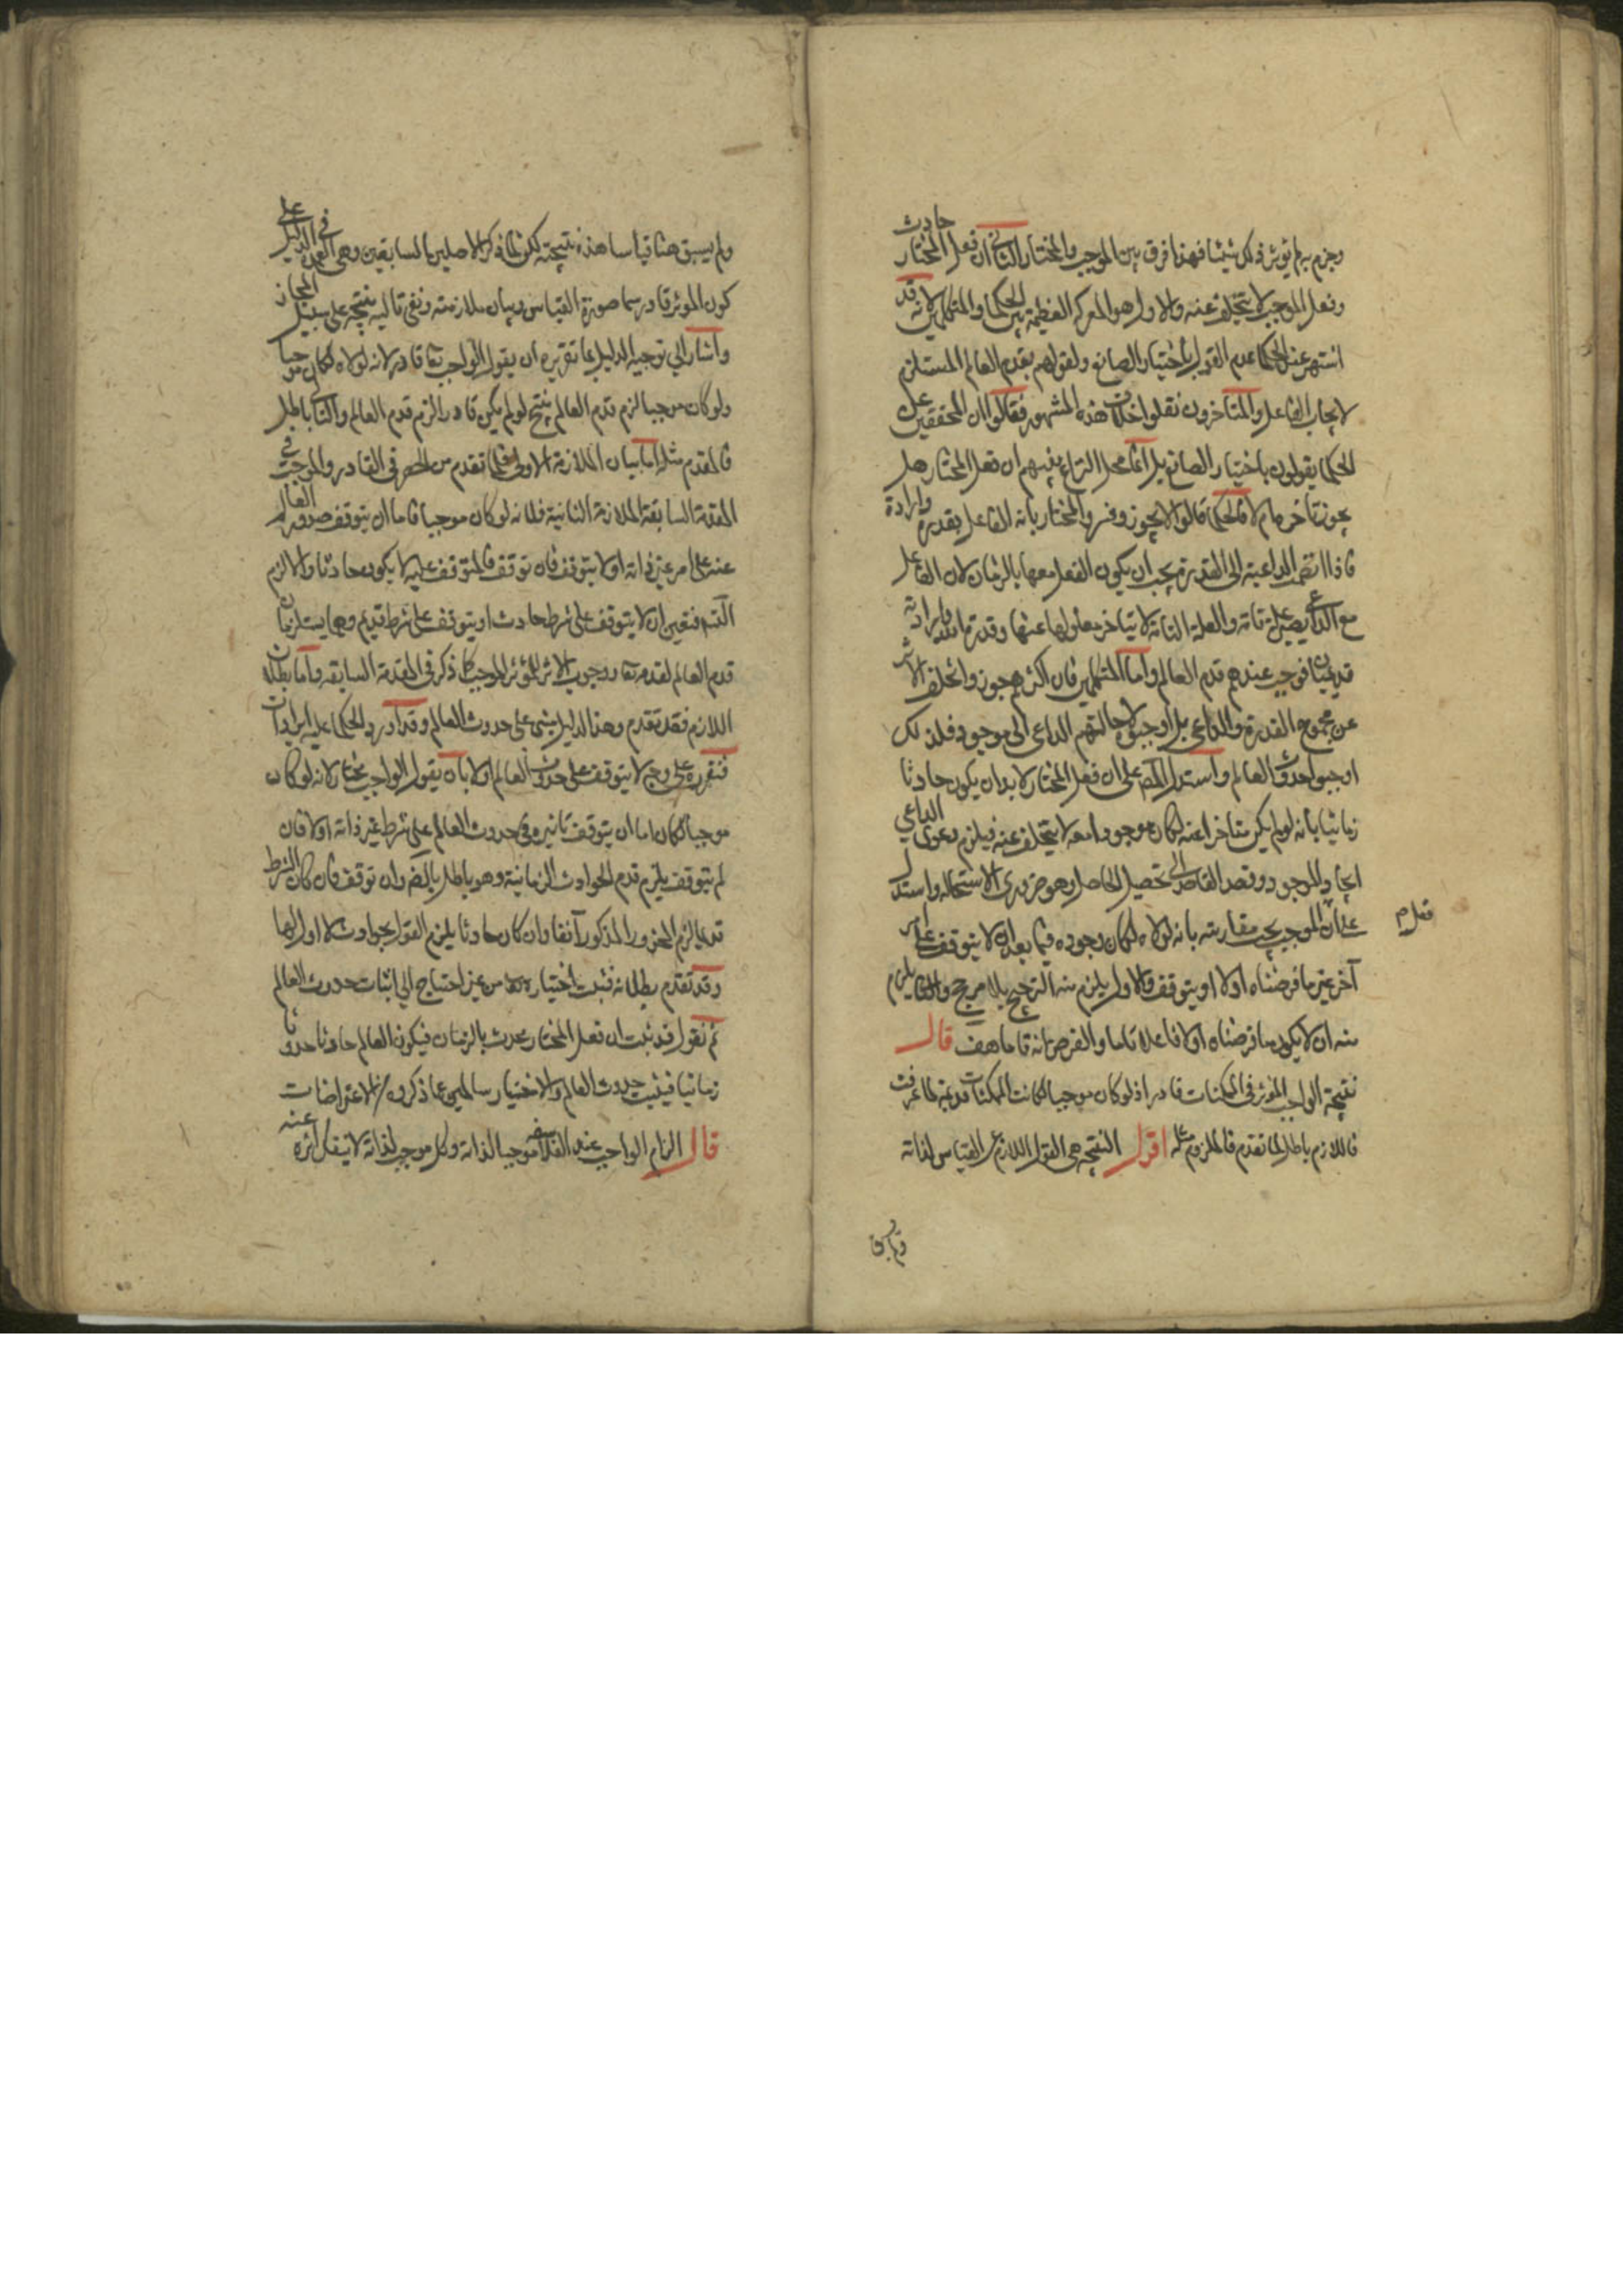 وجزم به لم يؤثر ذلك شيئا فهذا فرق بين الموجب والمختار الثاني ان فعل المختار حادث
وفعل الموجب لا يتخلف عنه والاول هو المعركة العظيمة بين الحكما والمتكلمين لانه قد
اشتهر عند الحكما عدم القول باختيار الصانع ولقولهم بقدم العالم المستلزم
لايجاب الفاعل والمتاخرون نقلوا خلاف هذه المشهور فقالوا ان المحققين
الحكما يقولون باختيار الصانع بل انما محل النزاع بينهم ان فعل المختار هل
يجوز تاخره ام لا فالحكما قالوا لا يجوز وفسروا المختار بانه الفاعل بقدرة وارادة
فاذا انضمت الداعية الى القدرة يجب ان يكون الفعل معها بالزمان لان الفاعل
مع الداعي يصير علة تامة والعلة التامة لا يتاخر معلولها عنها وقدرة الله وارادته
قديمتان فوجب عندهم قدم العالم واما المتكلمين فان اكثرهم جوزوا تخلف الاثر
عن مجموع القدرة والداعي بل اوجبوه لاحالتهم الداعي الى موجود فلذلك
اوجبوا حدوث العالم واستدل المص على ان فعل المختار لا بد ان يكون حادثا
زمانيا بانه لو لم يكن متاخرا عنه لكان موجودا معه لا يتخلف عنه فيلزم دعوى الداعي
ايجاد الموجود وقصد القاصد الى تحصيل الحاصل وهو ضروري الاستحالة واستدل
على ان الموجب يجب مقارنته بانه لولاه لكان وجوده فيما بعد اما لا يتوقف على امر
آخر غير ما فرضناه اولا او يتوقف والاول يلزم منه الترجيح بلا مرجح والثاني يلزم
منه ان لا يكون ما فرضناه اولا فاعلا تاما والفرض انه تاما هف قال
نتيجة الواجب المؤثر في الممكنات قادر اذ لو كان موجبا لكانت الممكنات قديمة لما عرفت
فاللازم باطل لما تقدم فالملزوم مثله اقول النتيجة هي القول اللازم عن القياس لذاته
ولم يسبق هنا قياسا هذه نتيجته لكن لما ذكر الاصلين السابقين وهي العمدة في الدليل على
كون المؤثر قادر سما صورة القياس وبيان ملازمته ونفي تاليه نتيجة على سبيل المجاز
واشار الى توجيه الدليل بما تقريره ان يقول الواجب تعا قادر لانه لولاه لكان موجبا
ولو كان موجبا لزم قدم العالم ينتج لو لم يكن قادرا لزم قدم العالم والتالي باطل
فالمقدم مثله اما بيان الملازمة الاولى فلما تقدم من الحصر في القادر والموجب في
المقدمة السابقة الملازمة الثانية فلانه لو كان موجبا فاما ان يتوقف صدور العالم
عنه على امر غير ذاته او لا يتوقف فان توقف فالمتوقف عليه لا يكون حادثا والا لزم
التسم فتعين ان لا يتوقف على شرط حادث او يتوقف على شرط قديم وهما يستلزمان
قدم العالم لقدمه تعا ووجوب الاثر للمؤثر الموجب كما ذكر في المقدمة السابقه واما بطلان
اللازم فقد تقدم وهذا الدليل يبنى على حدوث العالم وقد اورد الحكما عليه ايرادات
فنقرره على وجه لا يتوقف على حدوث العالم اولا بان يقول الواجب مختار لانه لو كان
موجبا لكان اما ان يتوقف تاثيره في حدوث العالم على شرط غير ذاته او لا فان
لم يتوقف يلزم قدم الحوادث الزمانية وهو باطل بالضر وان توقف فان كان الشرط
قديما لزم المحذور المذكور آنفا وان كان حادثا يلزم القول بحوادث لا اول لها
وقد تقدم بطلانه فثبت اختياره من غير احتياج الى اثبات حدوث العالم
ثم نقول قد ثبت ان فعل المختار محدث بالزمان فيكون العالم حادثا حدوثا
زمانيا فيثبت حدوث العالم والاختيار سالمين عما ذكروه الاعتراضات
قال الزام الواجب عند الفلاسفة موجبا لذاته وكل موجب لذاته لا ينفك اثره عنه